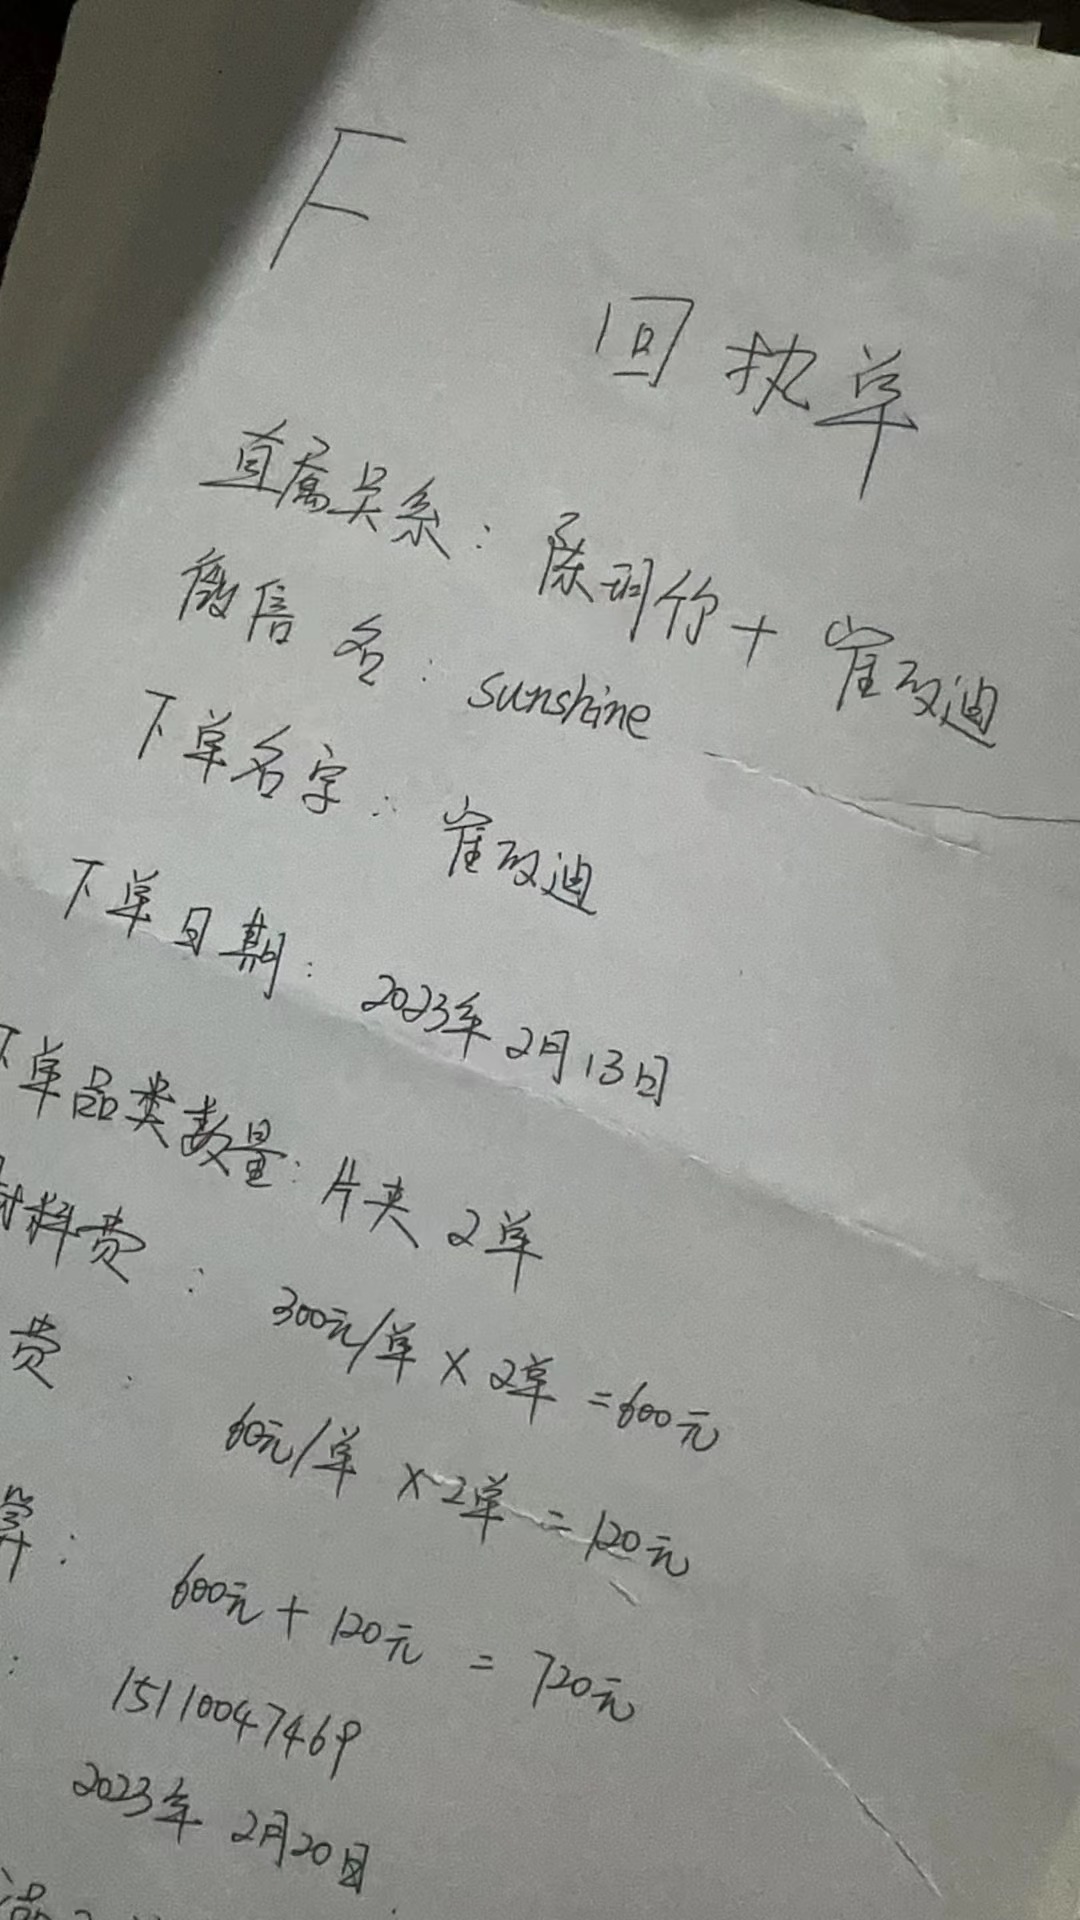 F
回执单
直属关系：陈玥竹+崔改迪
微信名：sunshine
下单名字：崔改迪
下单日期：2023年2月13日
下单品类数量：片夹 2单
材料费：300元/单×2单=600元
费：60元/单×2单=120元
算：600元+120元=720元
：15110047469
2023年2月20日